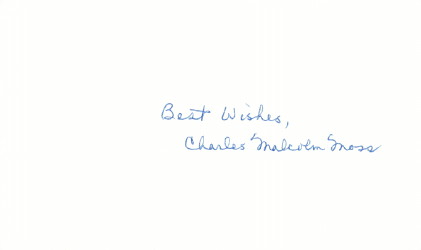 Best Wishes,
Charles Malcolm Moss